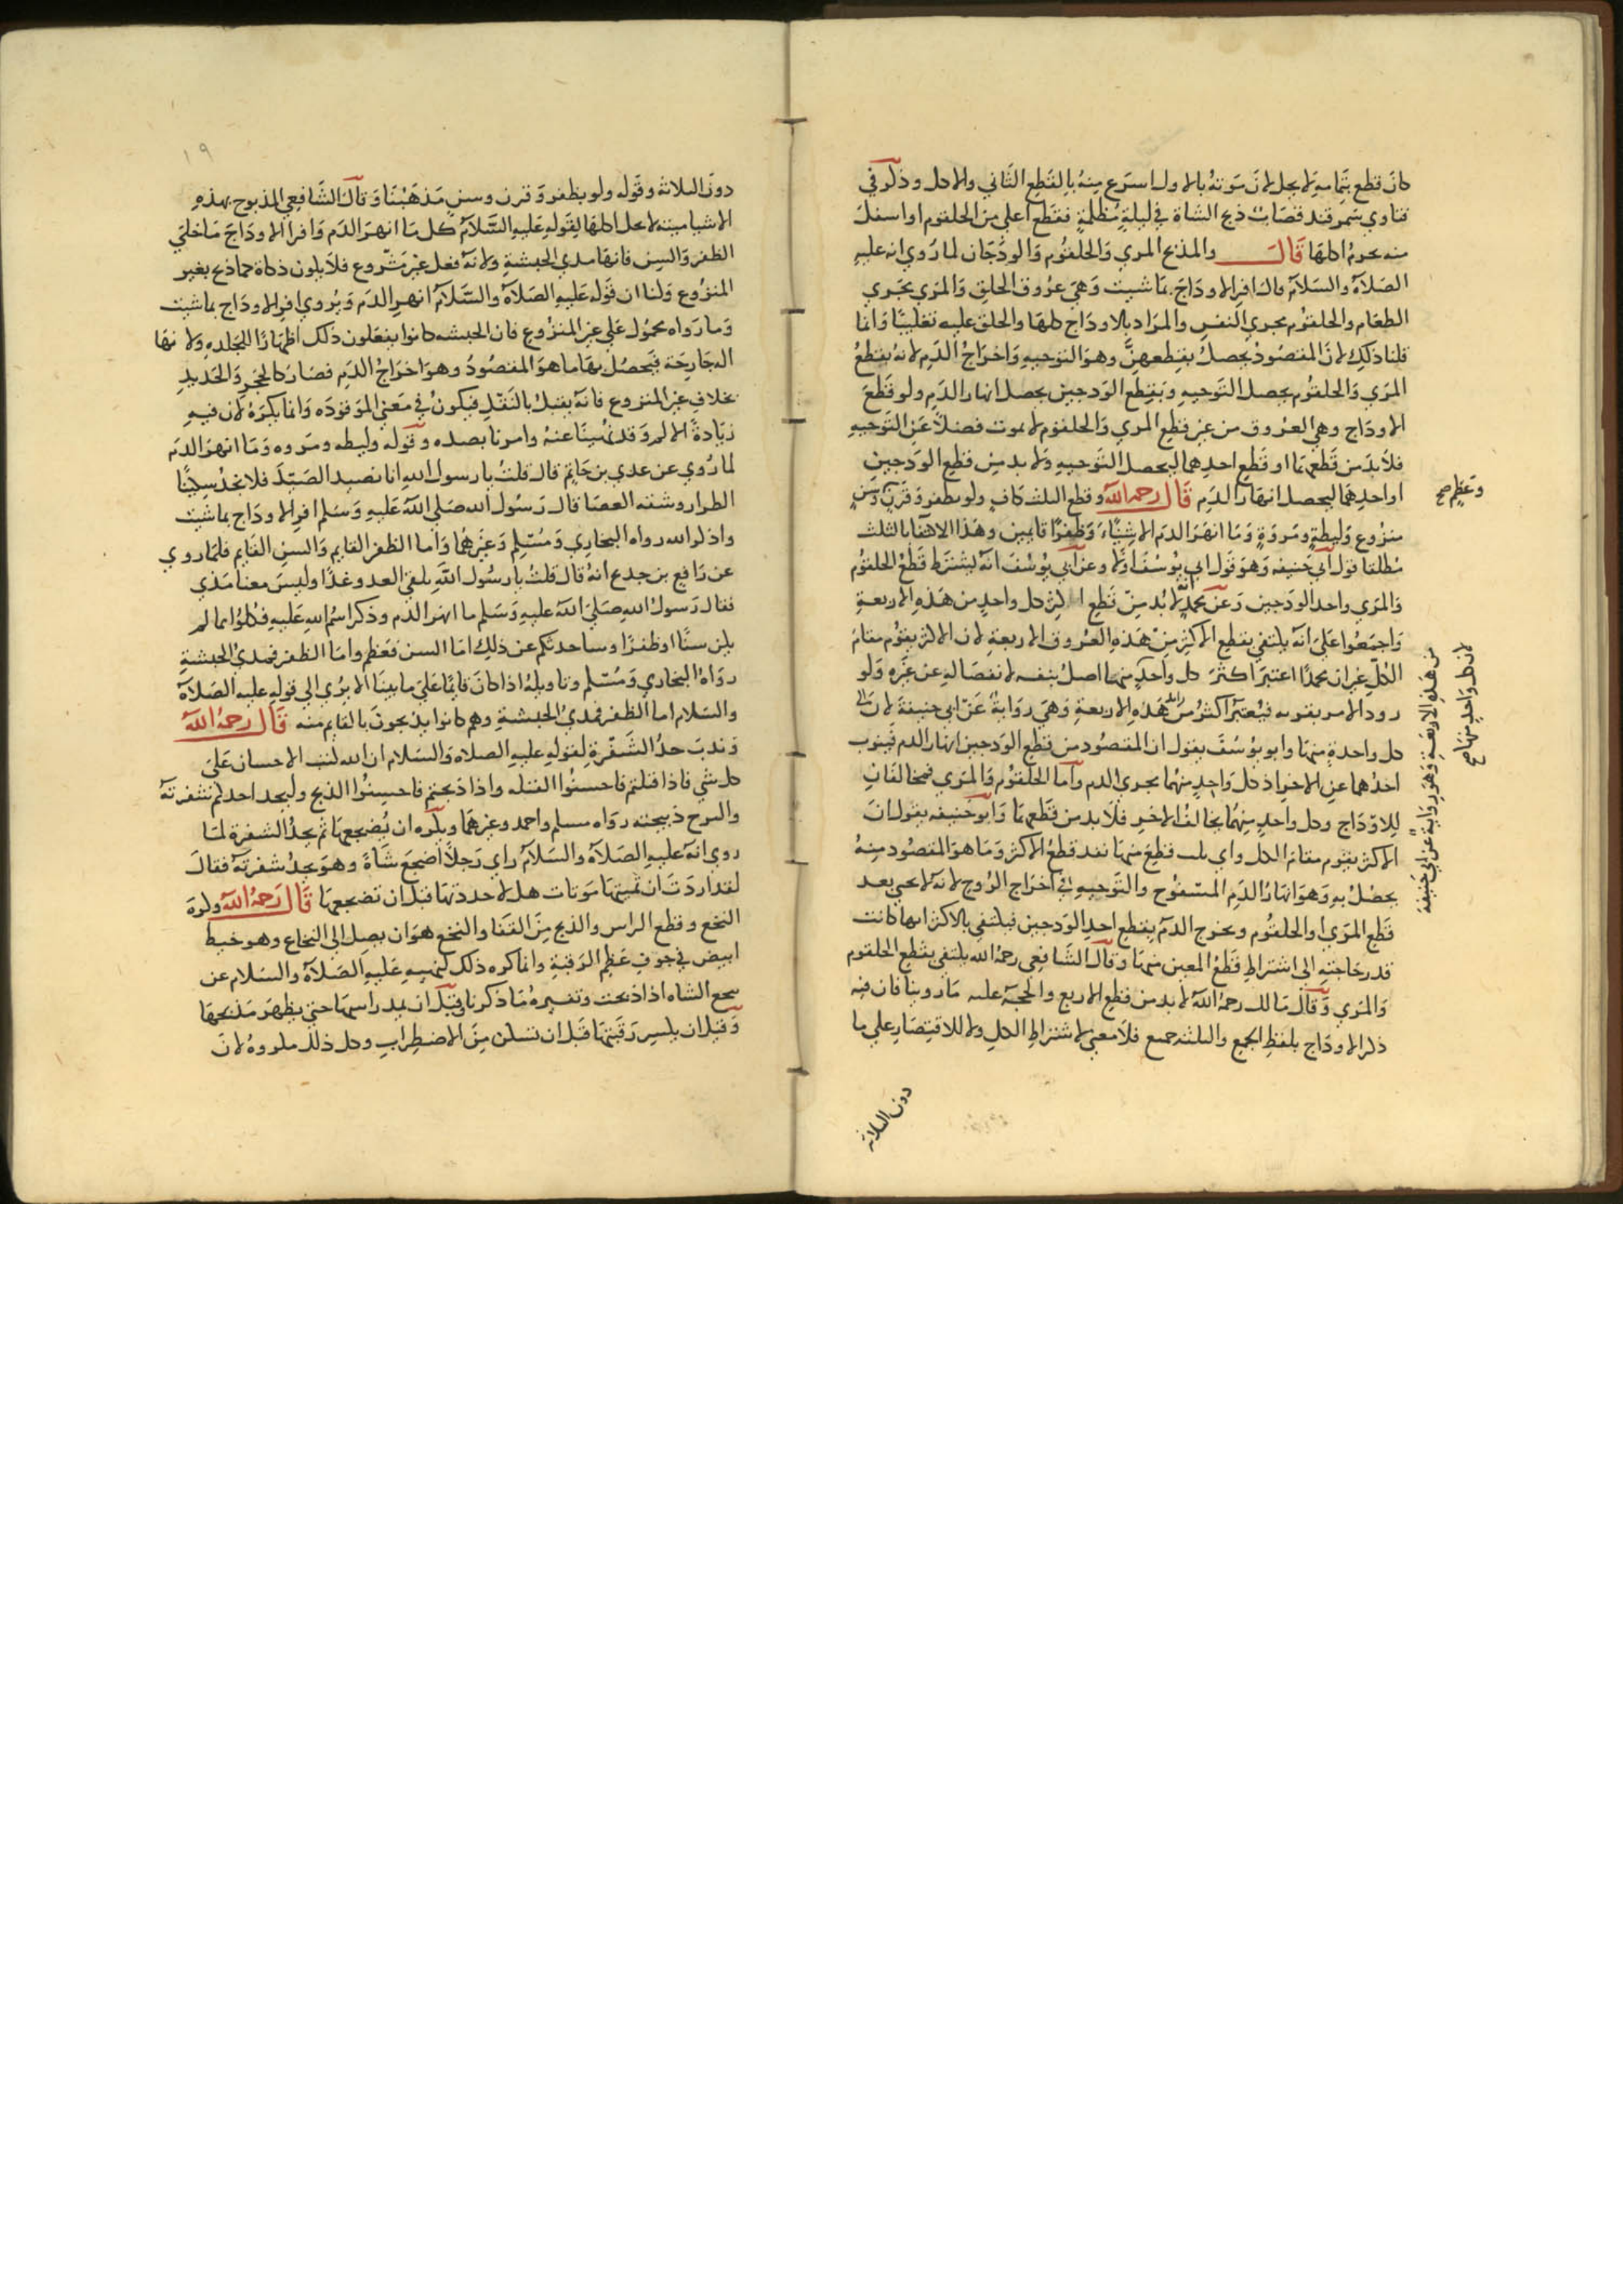 كان قطع بتمامه لا يحل لان موته بالاول اسرع منه بالقطع الثاني والا حل وذكر في
فتاوي سمرقند قصاب ذبح الشاة في ليلة مظلمة فقطع اعلي من الحلقوم او اسفل
منه يحرم اكلها قال والمذبح المري والحلقوم والودجان لما روي انه عليه
الصلاة والسلام قال افر الاوداج بما شيت وهي عروق الحلق والمري يجري
الطعام والحلقوم مجري النفس والمراد بالاوداج كلها والحلق عليه تغليبا وانما
قلنا ذلك لان المقصود يحصل بقطعهن وهو التوحيه واخراج الدم لانه بقطع
المري والحلقوم يحصل التوحيه وبقطع الودجين يحصل انهار الدم ولو قطع
الاوداج وهي العروق من غير قطع المري والحلقوم لا يموت فضلا عن التوحيه
فلا بد من قطعهما او قطع احدهما ليحصل التوحيه ولا بد من قطع الودجين
او احدهما ليحصل انهار الدم قال رحمه الله وقطع الثلث كاف ولو بظفر وقرن وسن
وعظم صح
منزوع وليطة ومروة وما انهر الدم الا سنا وظفرا قايمين وهذا الاكتفا بالثلث
مطلقا قول ابي حنيفه وهو قول ابي يوسف اولا وعن ابي يوسف انه يشترط قطع الحلقوم
والمري واحد الودجين وعن محمد انه لا بد من قطع اكثر كل واحد من هذه الاربعة
واجمعوا علي انه يكتفي بقطع الاكثر من هذه العروق الاربعة لان الاكثر يقوم مقام
الكل غير ان محمدا اعتبر اكثر كل واحد منها اصل بنفسه لانفصاله عن غيره ولو
ورد الامر بفريه فيعتبر اكثر من كل هذه الاربعة وهي رواية عن ابي حنيفة لان
من هذه الاربعة وهو رواية عن ابي حنيفة
لان كل واحد منها صح
كل واحدة منها وابو يوسف يقول ان المقصود من قطع الودجين انهار الدم فينوب
احدهما عن الاخر اذ كل واحد منهما مجري الدم واما الحلقوم والمري فمخالفان
للاوداج وكل واحد منهما يخالف الاخر فلا بد من قطعهما وابو حنيفه يقول ان
الاكثر يقوم مقام الكل واي ثلث قطع منها فقد قطع الاكثر وما هو المقصود منه
يحصل به وهو انهار الدم المسفوح والتوحيه في اخراج الروح لانه لا يحيي بعد
قطع المري او الحلقوم ويخرج الدم بقطع احد الودجين فيكتفي بالاكثر ايها كانت
قدر حاجته الي اشتراط قطع المعين منها وقال الشافعي رحمه الله يكتفي بقطع الحلقوم
والمري وقال مالك رحمه الله لا بد من قطع الاربع والحجة عليه ما روينا فان فيه
ذكر الاوداج بلفظ الجمع والثلثه جمع فلا معني لاشتراط الكل ولا للاقتصار علي ما
دون الثلاثه
١٩
دون الثلاثة وقوله ولو بظفر وقرن وسن مذهبنا وقال الشافعي المذبوح بهذه
الاشيا ميتة لا يحل اكلها لقوله عليه السلام كل ما انهر الدم وافرا الاوداج ما خلي
الظفر والسن فانها مدي الحبشة ولانه فعل غير مشروع فلا يكون ذكاة كما ذبح بغير
المنزوع ولنا ان قوله عليه الصلاة والسلام انهر الدم ويروي افر الاوداج بما شيت
وما رواه محمول علي غير المنزوع فان الحبشه كانوا يفعلون ذلك اظهارا للجلده ولانها
اله جارحة فيحصل بها ما هو المقصود وهو اخراج الدم فصار كالحجر والحديد
بخلاف غير المنزوع فانه يقتل بالثقل فيكون في معني الموقوذه وانما يكره لان فيه
زيادة الالم وقد نهينا عنه وامرنا بضده وقوله وليطه ومروه وما انهر الدم
لما روي عن عدي بن حاتم قال قلت يا رسول الله انا نصيد الصيد فلا نجد سكينا
الا الظرار وشقه العصا قال رسول الله صلي الله عليه وسلم افر الاوداج بما شيت
واذكر الله رواه البخاري ومسلم وغيرهما واما الظفر القايم والسن القايم فلما روي
عن رافع بن خديج انه قال قلت يا رسول الله نلقي العدو غدا وليس معنا مدي
فقال رسول الله صلي الله عليه وسلم ما انهر الدم وذكر اسم الله عليه فكلوا ما لم
يكن سنا او ظفرا وساحدثكم عن ذلك اما السن فعظم واما الظفر فمدي الحبشة
رواه البخاري ومسلم وتاويله اذا كان قايما علي ما بينا الا يري الي قوله عليه الصلاة
والسلام اما الظفر فمدي الحبشة وهم كانوا يذبحون بالقايم منه قال رحمه الله
وندب حد الشفرة لقوله عليه الصلاه والسلام ان الله كتب الاحسان علي
كل شي فاذا قتلتم فاحسنوا القتله واذا ذبحتم فاحسنوا الذبح وليحد احدكم شفرته
وليرح ذبيحته رواه مسلم واحمد وغيرهما ويكره ان يضجعها ثم يحد الشفرة لما
روي انه عليه الصلاة والسلام راي رجلا اضجع شاة وهو يحد شفرته فقال
لقد اردت ان تميتها موتات هل لا حددتها قبل ان تضجعها قال رحمه الله وكره
النخع وقطع الراس والذبح من القفا والنخع هو ان يصل الي النخاع وهو خيط
ابيض في جوف عظم الرقبة وانما كره ذلك لنهيه عليه الصلاة والسلام عن
نخع الشاه اذا ذبحت وتفسيره ما ذكرنا وقيل ان يمد راسها حتي يظهر مذبحها
وقيل ان يكسر رقبتها قبل ان تسكن من الاضطراب وكل ذلك مكروه لان